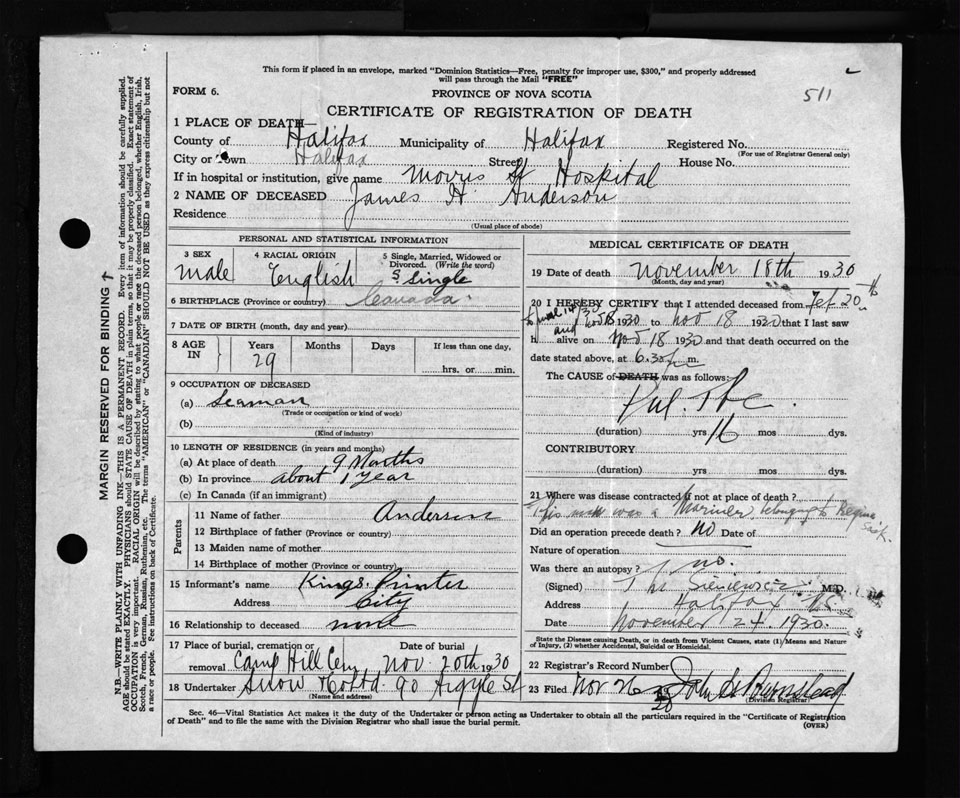 This form if placed in an envelope, marked "Dominion Statistics—Free, penalty for improper use, $300," and properly addressed
will pass through the Mail "FREE"
FORM 6.
PROVINCE OF NOVA SCOTIA
511
CERTIFICATE OF REGISTRATION OF DEATH
1 PLACE OF DEATH—
County of Halifax Municipality of Halifax Registered No.
(For use of Registrar General only)
City or Town Halifax Street House No.
If in hospital or institution, give name Morris St Hospital
2 NAME OF DECEASED James H Anderson
Residence
(Usual place of abode)
PERSONAL AND STATISTICAL INFORMATION
3 SEX male
4 RACIAL ORIGIN English
5 Single, Married, Widowed or
Divorced. (Write the word)
S Single
6 BIRTHPLACE (Province or country) Canada
7 DATE OF BIRTH (month, day and year)
8 AGE IN Years 29 Months Days If less than one day,
hrs. or min.
9 OCCUPATION OF DECEASED
(a) Seaman
(Trade or occupation or kind of work)
(b)
(Kind of industry)
10 LENGTH OF RESIDENCE (in years and months)
(a) At place of death 9 Months
(b) In province about 1 year
(c) In Canada (if an immigrant)
Parents
11 Name of father Anderson
12 Birthplace of father (Province or country)
13 Maiden name of mother
14 Birthplace of mother (Province or country)
15 Informant's name Kings Printer
Address City
16 Relationship to deceased none
17 Place of burial, cremation or Date of burial
removal Camp Hill Cem, Nov. 20th 1930
18 Undertaker Snow & Co Ltd. 90 Argyle St
(Name and address)
MEDICAL CERTIFICATE OF DEATH
19 Date of death November 18th 1930
(Month, day and year)
20 I HEREBY CERTIFY that I attended deceased from Feb 20th
1930 to Nov 18 1930 that I last saw
h alive on Nov 18 1930 and that death occurred on the
date stated above, at 6.30 p m.
The CAUSE of DEATH was as follows:
Pul. Tbc.
(duration) yrs 16 mos dys.
CONTRIBUTORY
(duration) yrs. mos. dys.
21 Where was disease contracted if not at place of death?
This man was a Mariner, belonging to Regina
Sask.
Did an operation precede death? no Date of
Nature of operation
Was there an autopsy? no.
(Signed) M.D.
Address Halifax
Date November 24. 1930.
State the Disease causing Death, or in death from Violent Causes, state (1) Means and Nature
of Injury, (2) whether Accidental, Suicidal or Homicidal.
22 Registrar's Record Number
23 Filed Nov 26
(Division Registrar)
Sec. 46—Vital Statistics Act makes it the duty of the Undertaker or person acting as Undertaker to obtain all the particulars required in the "Certificate of Registration
of Death" and to file the same with the Division Registrar who shall issue the burial permit.
(OVER)
MARGIN RESERVED FOR BINDING
N.B.—WRITE PLAINLY WITH UNFADING INK—THIS IS A PERMANENT RECORD. Every item of information should be carefully supplied.
AGE should be stated EXACTLY. PHYSICIANS should STATE CAUSE OF DEATH in plain terms, so that it may be properly classified. Exact statement of
OCCUPATION is very important. RACIAL ORIGIN will be described by stating to what people or race the deceased person belonged, whether English, Irish,
Scotch, French, German, Russian, Ruthenian, etc. The terms "AMERICAN" or "CANADIAN" SHOULD NOT BE USED as they express citizenship but not
a race or people. See instructions on back of Certificate.